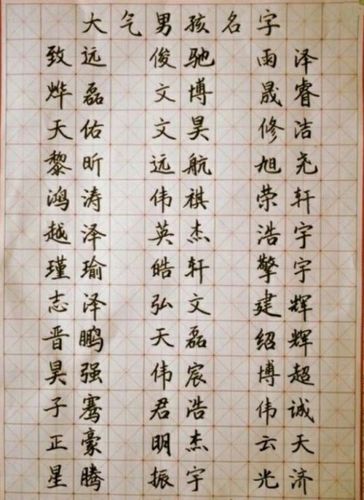 大气男孩名字
致远 俊驰 雨泽
烨磊 文博 晟睿
天佑 文昊 修洁
黎昕 远航 旭尧
鸿涛 伟祺 荣轩
越泽 英杰 浩宇
瑾瑜 皓轩 擎宇
志泽 弘文 建辉
晋鹏 天磊 绍辉
昊强 伟宸 博超
子骞 君浩 伟诚
正豪 明杰 云天
星腾 振宇 光济